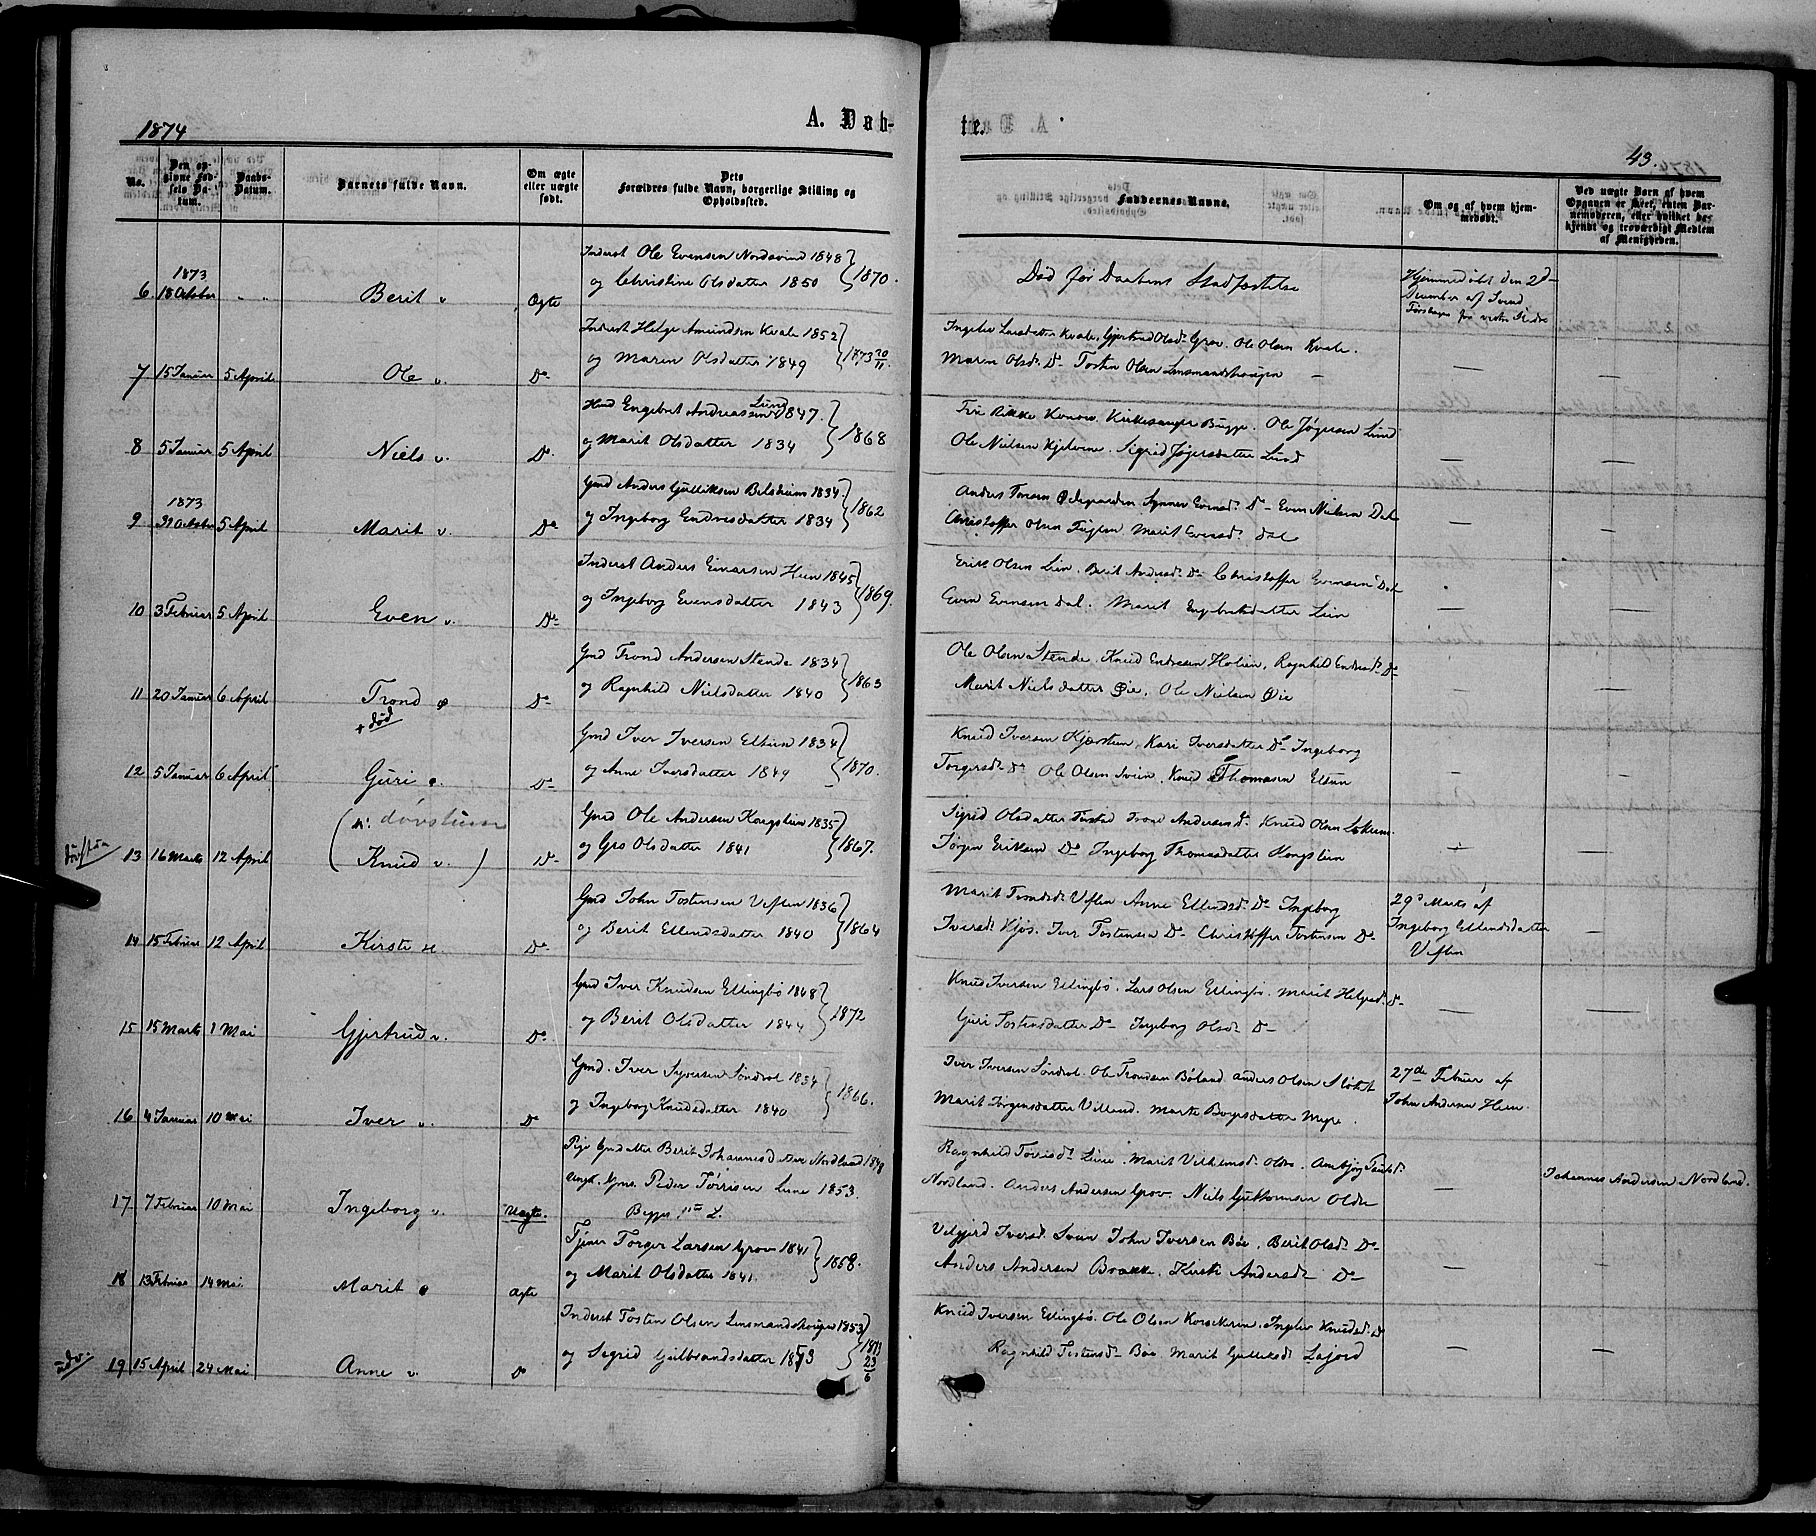 1874
A. Døb-
te.
43.
No.
Den op-
givne Fød-
sels Da-
tum.
Daabs-
Datum.
Barnets fulde Navn.
Om ægte
eller uægte
født.
Dets
Forældres fulde Navn, borgerlige Stilling og
Opholdssted.
Faddernes Navne.
Om og af hvem hjem-
medøbt.
Ved uægte Børn af hvem
Opgaven er skeet, enten Bar-
nemoderen, eller hvilket be-
kjendt og troværdigt Medlem
af Menigheden.
1873
6 18 October " " Berit v Ægte
Inderst Ole Evensen Nordsvind 1848
og Christine Olsdatter 1850 1870.
Død før Daabens Stadfæstelse
Hjemmedøbt den 2d
December af
7 15 Januar 5 April Ole v D°
Inderst Helge Amundsen Kvale 1852
og Maren Olsdatter 1849 1873 30/11
Ingelev Larsdatter Kvale, Gjertrud Olsd. Grov. Ole Olsen Kvale.
Maren Olsd. D° Tosten Olsen Lensmandshougen —
8 5 Januar 5 April Niels v. D°
Engebret Andreassen Lund 1847.
og Marit Olsdatter 1834 1868
Rikke Konow. Kirkesanger Bugge. Ole Jøgersen Lund
Ole Nielsen Kjelvene. Sigrid Jøgersdatter Lund
1873
9 October 5 April Marit v. D°
Gmd Anders Gulliksen Belsheim 1834
og Ingeborg Endresdatter 1834 1862
Anders Tronsen Ødegaarden Synnev Evensd. D° Even Nielsen Dal
Christoffer Olsen Fuglen Marit Evensd. Dal
10 3 Februar 5 April Even v. D°
Inderst Anders Einarsen Heen 1845
og Ingeborg Evensdatter 1843 1869.
Erik Olsen Lien. Berit Andersd. D° Christoffer Evensen Dal
Even Evensen Dal. Marit Engebretsdatter Lien
11 20 Januar 6 April Trond D°
+ død
Gmd Trond Andersen Stende 1834
og Ragnhild Nielsdatter 1840 1863
Ole Olsen Stende, Knud Endresen Holien, Ragnhild Endresd. D°
Marit Nielsdatter Øie, Ole Nielsen Øie
12 5 Januar 6 April Guri D°
Gmd Iver Iversen Eltun 1834
og Anne Iversdatter 1849 1870.
Knud Iversen Kjørstein, Kari Iversdatter D° Ingeborg
Torgersd. D° Ole Olsen Svien, Knud Thomasen Eltun
døvstum
13 16 Marts 12 April (Knud v.) D°
Gmd Ole Andersen Kongslien 1835
og Gro Olsdatter 1841 1867.
Sigrid Olsdatter Trond Andersen D° Knud Olsen
Jørgen Eriksen D° Ingeborg Thomasdatter Kongslien
14 15 Februar 12 April Kirsti D°
Gmd John Tostensen Veflen 1836
og Berit Ellendsdatter 1840 1864
Marit Trondsd. Veflen Anne Ellendsd. D° Ingeborg
Iversd. Kjøs. Iver Tostensen D° Christoffer Tostensen D°
29d Marts af
Ingeborg Ellendsdatter
Veflen
15 15 Marts 1 Mai Gjertrud v. D°
Gmd Iver Knudsen Ellingbø 1848
og Berit Olsdatter 1844 1872
Knud Iversen Ellingbø. Lars Olsen Ellingbø. Marit Helgesd. D°
Guri Tostensdatter D° Ingeborg Olsd. D°
16 4 Januar 10 Mai Iver v. D°
Gmd. Iver Syversen Søndrol 1834
og Ingeborg Knudsdatter 1840 1866.
Iver Iversen Søndrol. Ole Trondsen Bøland. Anders Olsen
Marit Jørgensdatter Villand. Marte Børgesdatter Myre.
27de Februar af
John Andersen Heen.
17 7 Februar 10 Mai Ingeborg v. Uægte.
Pige Berit Johannesdatter Nordland 1848
Ungk. Peder Torrisen Lune 1853.
Ragnhild Torrisd. Lune. Marit Vilhelmsd. Olde.
Nordland. Anders Andersen Grov. Niels Guttormsen Olde
Johannes Andersen Nordland.
18 13 Februar 14 Mai Marit Ægte
Tjener Torger Larsen Grov 1841
og Marit Olsdatter 1841. 1868.
Iversd. Svien John Iversen Bøe, Berit Olsd. D°
Anders Andersen Brakke. Kirsti Andersd. D°
19 15 April 24 Mai Anne v. D°
Inderst Tosten Olsen Lensmandshougen 1853
og Sigrid Gulbrandsdatter 1853 1873 23/6
Knud Iversen Ellingbø. Ole Olsen Ingelev Knudsd. D°
Ragnhild Tostensd. Bøe Marit Gulliksd. Lajord